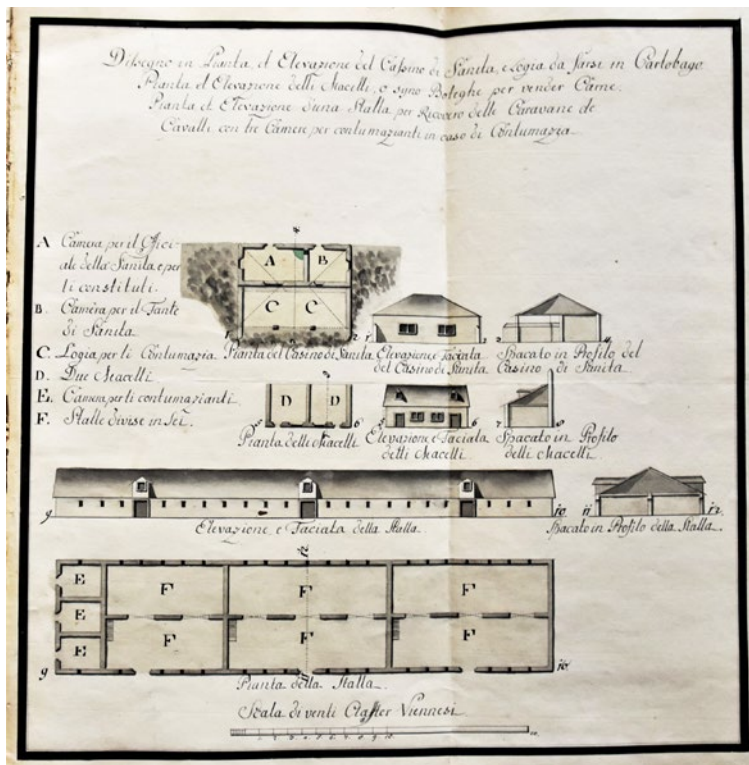 Dissegno in Pianta, et Elevazione del Cassino di Sanita, e Logia da farsi in Carlobago
Pianta et Elevazione delli Macelli, o syno Boteghe per vender Carne.
Pianta et Elevazione d'una Stalla per Recovero delle Caravane de
Cavalli, con tre Camere per contumazianti in caso di Contumazia.
A Camera per il Offici-
ale della Sanita e per
li constituti.
B. Camera per il Fante
di Sanita
C. Logia per li Contumazia
D. Due Macelli
E. Camera per li contumazianti.
F. Stalle divise in Sei.
A B
C C
1 2 1 2 3 4
Pianta del Casino di Sanita. Elevazione, e Faciata
del Casino di Sanita
Spacato in Profilo del
Casino di Sanita.
D D
5 6 5 6 7 8
Pianta delli Macelli
Elevazione, e Faciata
delli Macelli
Spacato in Profilo
delli Macelli.
9 10 11 12
Elevazione, e Faciata della Stalla.
Spacato in Profilo della Stalla.
12
E F F F
E
E F F F
9 11 10
Pianta della Stalla.
Scala di venti Clafter Viennesi
1 2 3 4 5 6 7 8 9 10 20